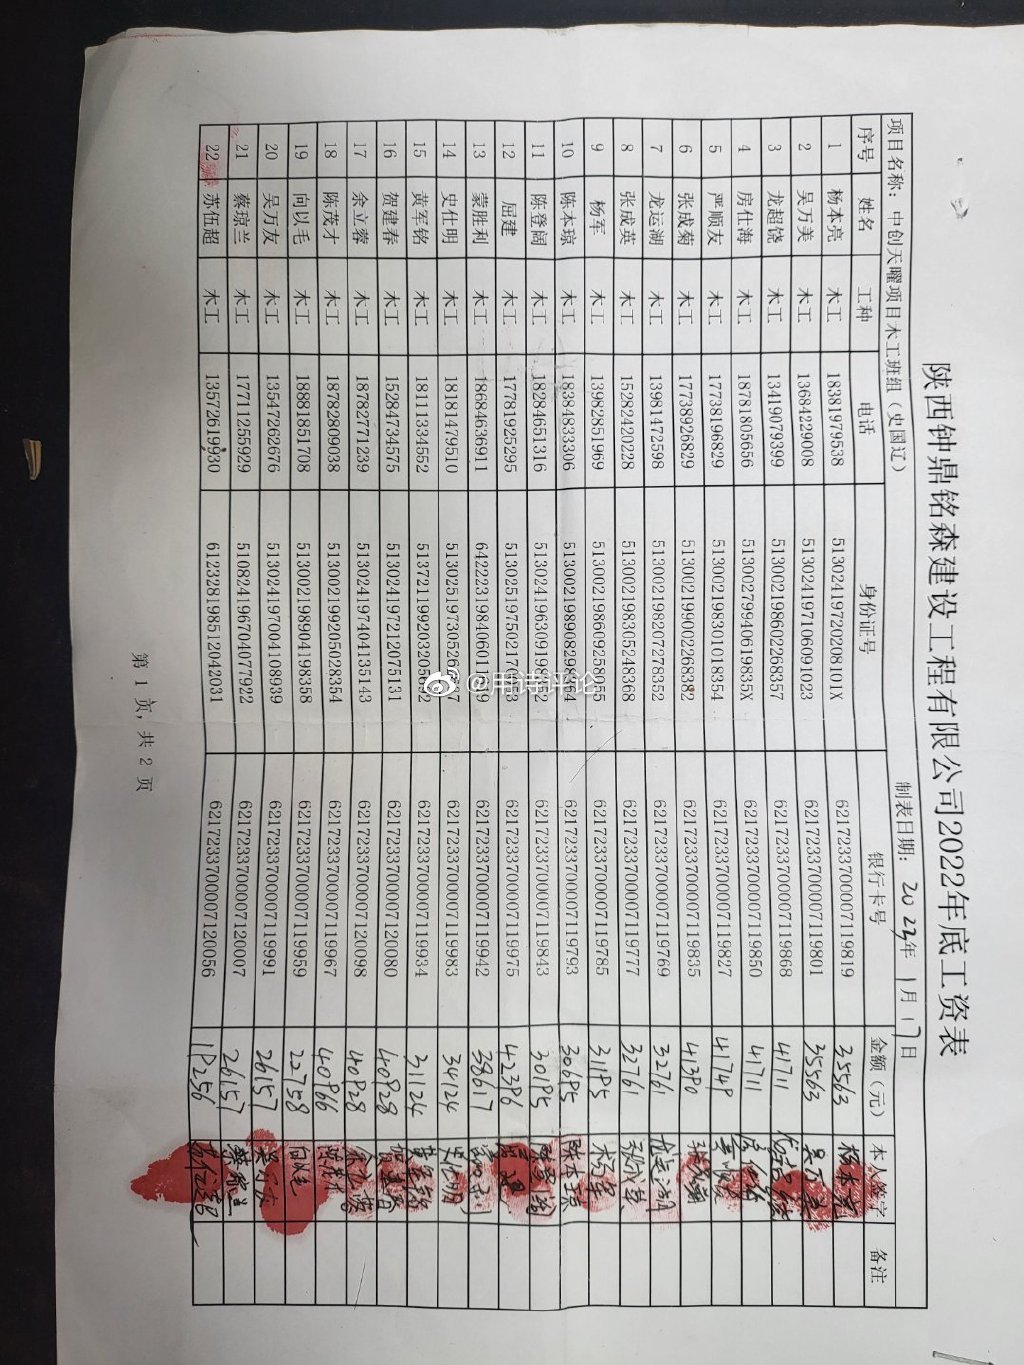 陕西钟鼎铭森建设工程有限公司2022年底工资表
项目名称：中创天曜项目木工班组（史国辽） 制表日期：2023年1月17日
序号 姓名 工种 电话 身份证号 银行卡号 金额（元） 本人签字 备注
1 杨本亮 木工 18381979538 51302419720208101X 6217233700007119819 35563 杨本亮
2 吴万美 木工 13684229008 513024197106091023 6217233700007119801 35563 吴万美
3 龙超饶 木工 13419079399 513002198602268357 6217233700007119868 41711
4 房仕海 木工 18781805656 6217233700007119850 41711 房仕海
5 严顺友 木工 17738196829 513002198301018354 6217233700007119827 41749 严顺友
6 张成菊 木工 17738926829 513002199002268382 6217233700007119835 41390 张成菊
7 龙运湖 木工 13981472598 513001198207278352 6217233700007119769 32761 龙运湖
8 张成英 木工 15282420228 513002198305248368 6217233700007119777 32761 张成英
9 杨军 木工 13982851969 6217233700007119785 31195 杨军
10 陈本琼 木工 18384833306 6217233700007119793 30695 陈本琼
11 陈登阔 木工 18284651316 6217233700007119843 30195 陈登阔
12 屈建 木工 17781925295 6217233700007119975 42396 屈建
13 蒙胜利 木工 18684636911 6217233700007119942 38617
14 史仕明 木工 18181479510 6217233700007119983 34124 史仕明
15 黄军铭 木工 18111334552 6217233700007119934 31124 黄军铭
16 贺建春 木工 15284734575 513024197212075131 6217233700007120080 40928 贺建春
17 余立蓉 木工 18782771239 513024197404135143 6217233700007120098 40928 余立蓉
18 陈茂才 木工 18782809038 513001199205028354 6217233700007119967 40966 陈茂才
19 向以毛 木工 18881851708 513001198904198358 6217233700007119959 22758 向以毛
20 吴万友 木工 13547262676 513024197004108939 6217233700007119991 26157 吴万友
21 蔡琼兰 木工 17711255929 510824196704077922 6217233700007120007 26157 蔡琼兰
22 苏伍超 木工 13572619930 612328198512042031 6217233700007120056 19256 苏伍超
第 1 页，共 2 页
@用诗评论